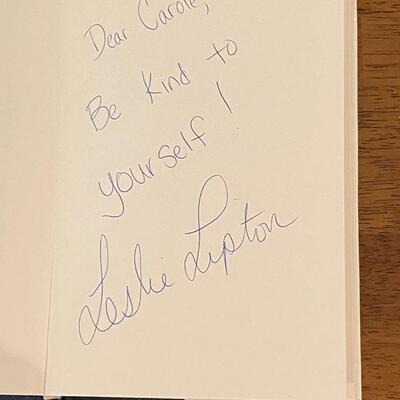 Dear Carole,
Be Kind to
yourself!
Leslie Lipton